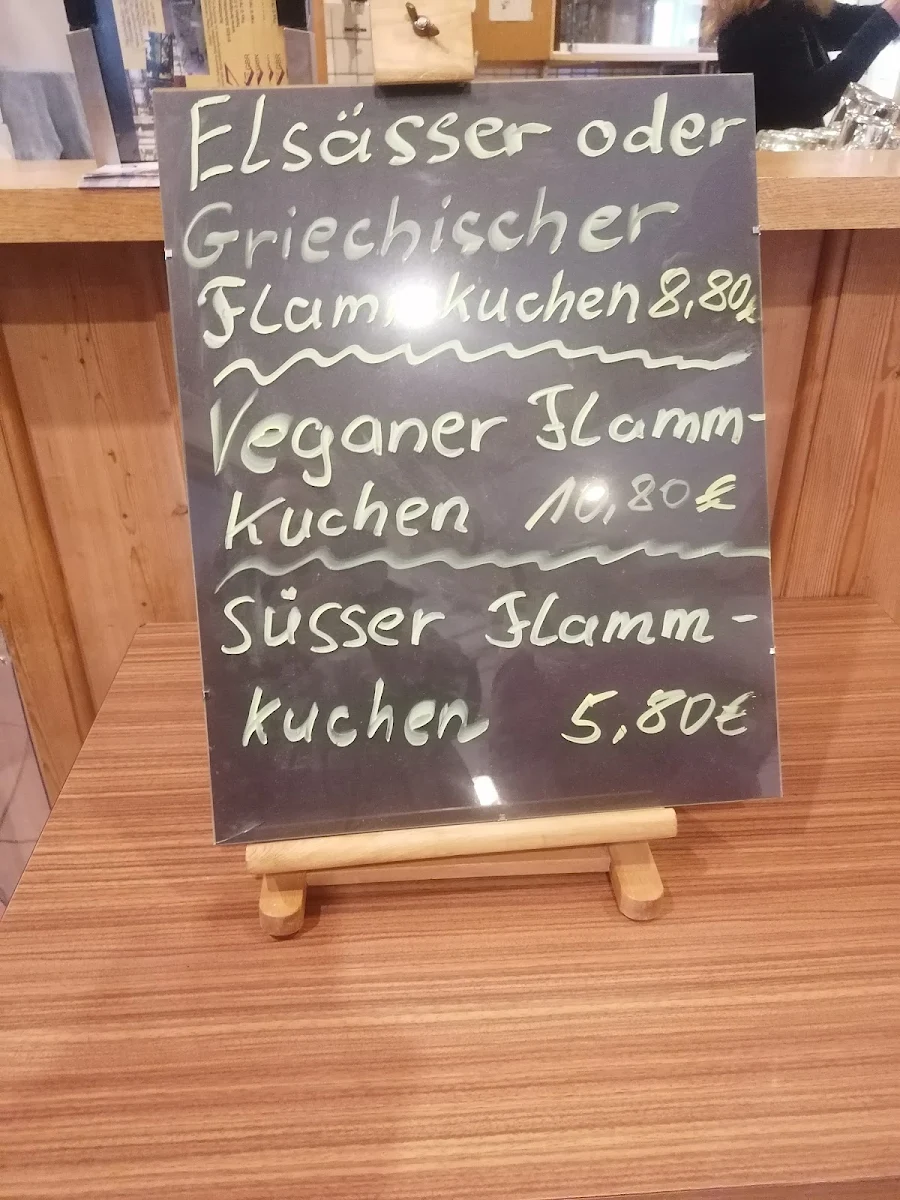 Elsässer oder
Griechischer
Flammkuchen 8,80€
Veganer Flamm-
kuchen 10,80€
Süsser Flamm-
kuchen 5,80€